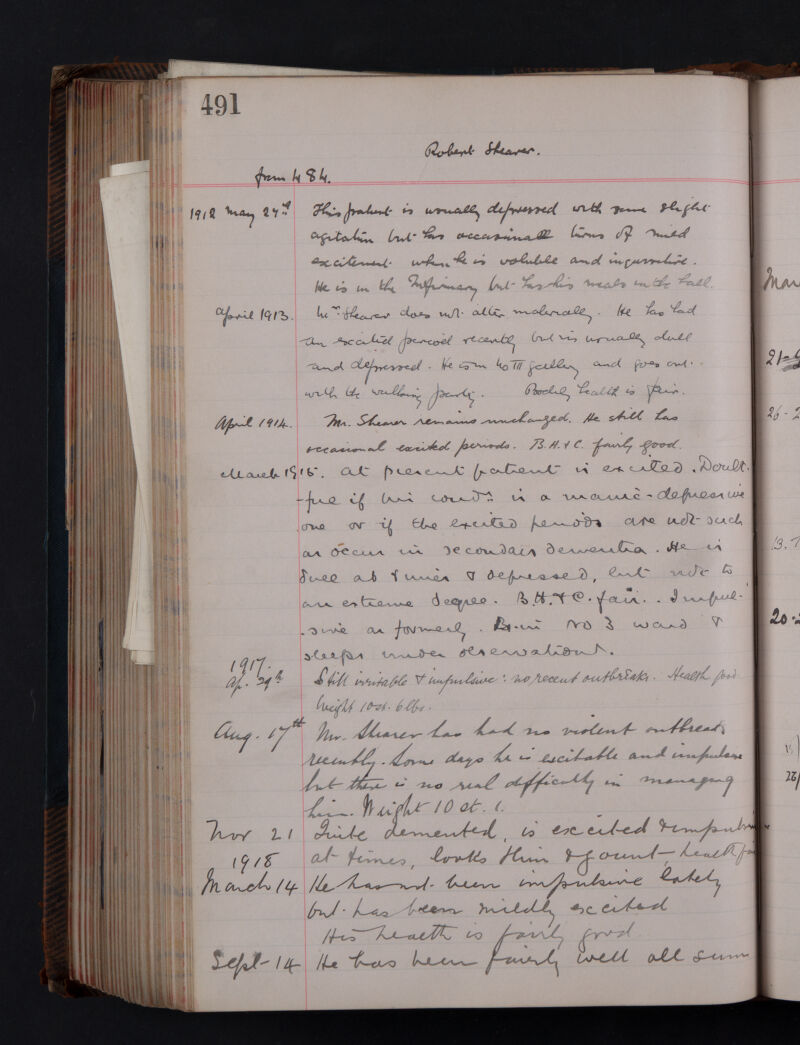 491
Robert Shearer.
from 484.
1912 May 24th This patient is usually depressed with some slight
agitation but has occasional turns of mild
excitement when he is voluble and inquisitive.
He is in the Infirmary but has his meals in the hall.
April 1913. Mr. Shearer does not alter materially. He has had
an excited period recently but is usually dull
and depressed. He is in No III gallery and goes out
with the walking party. Bodily health is fair.
April 1914. Mr. Shearer remains unchanged. He still has
occasional excited periods. B.H. & C. fairly good.
March 1915. At present patient is excited. Doubt-
-ful if his condn is a manic-depressive
one or if the excited periods are not such
as occur in secondary dementia. He is
dull at times & depressed, but not to
an extreme degree. B.H. & C. fair. Impul-
-sive as formerly. Is in No 3 ward &
sleeps under observation.
1917.
Ap. 29th Still irritable & impulsive: no recent outbreaks. Health good
Weight 10st. 6lbs.
Aug. 17th Mr. Shearer has had no violent outbreaks
recently. Some days he is excitable and impulsive
but there is no real difficulty in managing
him. Weight 10 st. 1.
Nov 21 Quite demented, is excited & impulsive
1918 at times, looks thin & gaunt, health
March 14 He has not been impulsive lately
but has been mildly excited
His health is fairly good.
Sept-14 He has been fairly well all
Mar
21-
26-2
13.7
20-2
28/